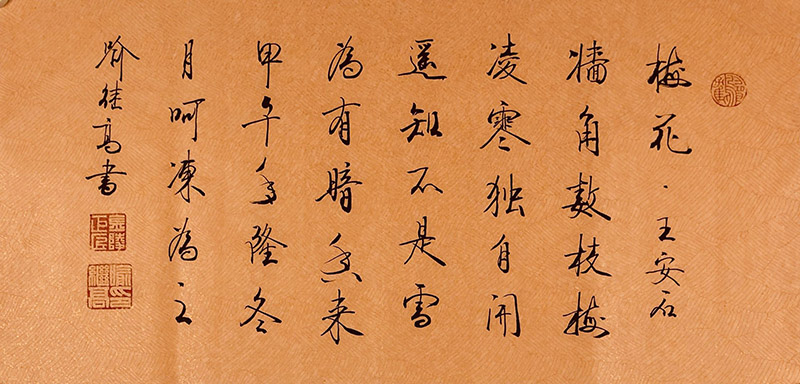 梅花·王安石
墙角数枝梅
凌寒独自开
遥知不是雪
为有暗香来
甲午年隆冬
月呵冻为之
喻继高书